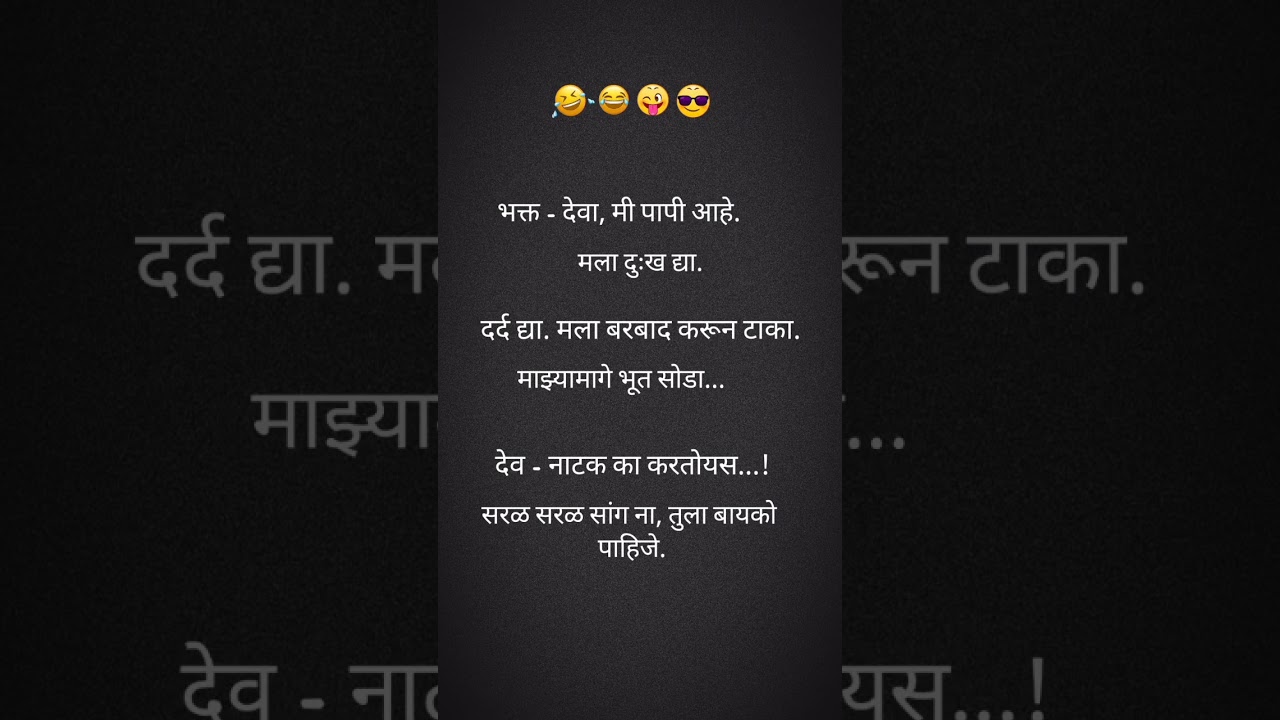 🤣😂😜😎
भक्त - देवा, मी पापी आहे.
मला दुःख द्या.
दर्द द्या. मला बरबाद करून टाका.
माझ्यामागे भूत सोडा...
देव - नाटक का करतोयस...!
सरळ सरळ सांग ना, तुला बायको
पाहिजे.